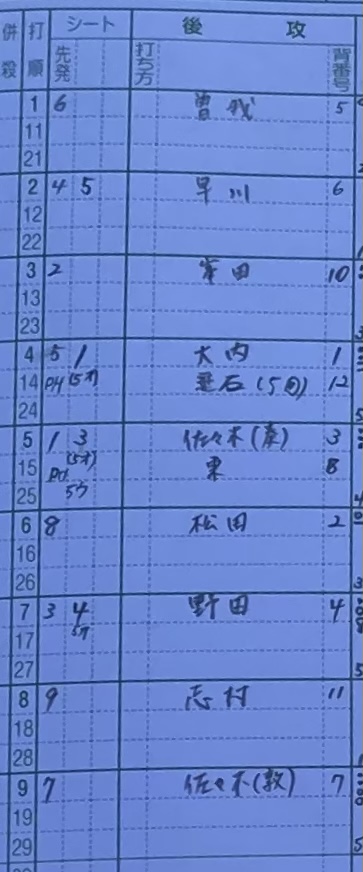 併殺 打順 シート 先発 後攻 打ち方 背番号
1 6 曽我 5
11
21
2 4 5 早川 6
12
22
3 2 峯田 10
13
23
4 5 1 大内 1
14 PH (5オ) 垂石(5回) 12
24
5 1 3 佐々木(泰) 3
15 (5オ) 栗 8
25 5ウ
6 8 松田 2
16
26
7 3 4 野田 4
17 5ウ
27
8 9 志村 11
18
28
9 7 佐々木(敦) 7
19
29